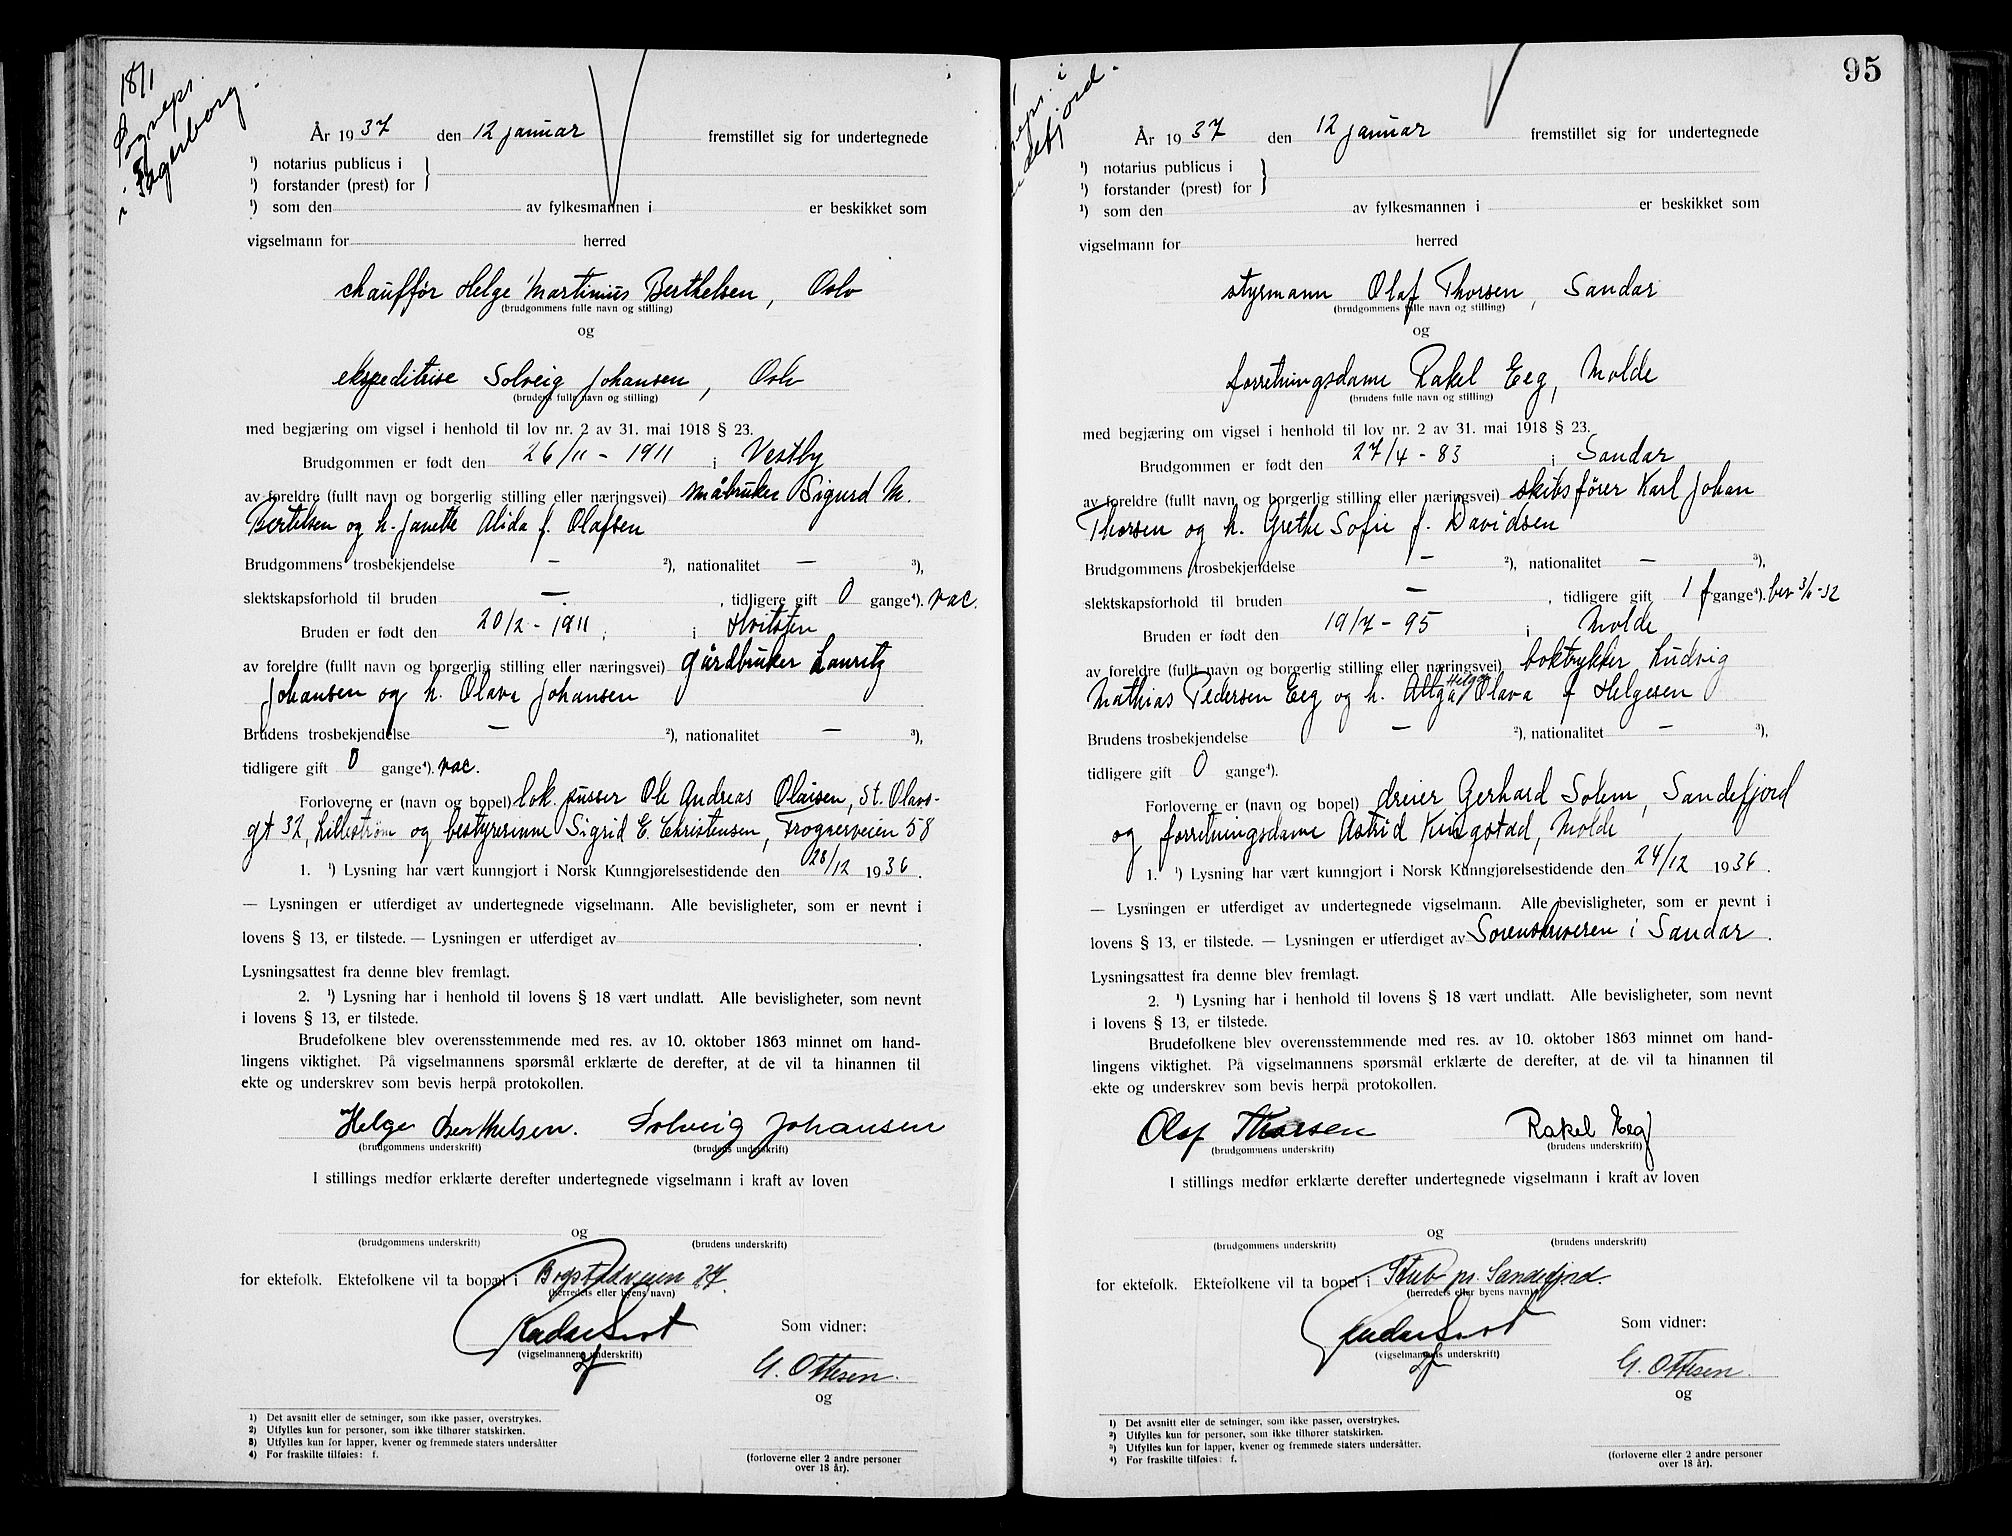 18/1
Sogneps.
i Fagerborg.
År 1937 den 12 januar fremstillet sig for undertegnede
¹) notarius publicus i
¹) forstander (prest) for
¹) som den av fylkesmannen i er beskikket som
vigselmann for herred
chauffør Helge Martinius Berthelsen, Oslo
(brudgommens fulle navn og stilling)
og
ekspeditrise Solveig Johansen, Oslo
(brudens fulle navn og stilling)
med begjæring om vigsel i henhold til lov nr. 2 av 31. mai 1918 § 23.
Brudgommen er født den 26/11 - 1911 i Vestby
av foreldre (fullt navn og borgerlig stilling eller næringsvei) småbruker Sigurd M.
Bertelsen og h. Janette Alida f. Olafsen
Brudgommens trosbekjendelse — ²), nationalitet — ³),
slektskapsforhold til bruden — , tidligere gift 0 gange⁴). vac.
Bruden er født den 20/2 - 1911, i Hvitsten
av foreldre (fullt navn og borgerlig stilling eller næringsvei) gårdbruker Lauritz
Johansen og h. Olava Johansen
Brudens trosbekjendelse — ²), nationalitet — ³),
tidligere gift 0 gange⁴). vac.
Forloverne er (navn og bopel) lok. pusser Ole Andreas Olaisen, St. Olavs-
gt 32, Lilleström og bestyrerinne Sigrid E. Christensen, Frognerveien 58
1. ¹) Lysning har vært kunngjort i Norsk Kunngjørelsestidende den 28/12 1936.
— Lysningen er utferdiget av undertegnede vigselmann. Alle bevisligheter, som er nevnt i
lovens § 13, er tilstede. — Lysningen er utferdiget av .
Lysningsattest fra denne blev fremlagt.
2. ¹) Lysning har i henhold til lovens § 18 vært undlatt. Alle bevisligheter, som nevnt
i lovens § 13, er tilstede.
Brudefolkene blev overensstemmende med res. av 10. oktober 1863 minnet om hand-
lingens viktighet. På vigselmannens spørsmål erklærte de derefter, at de vil ta hinannen til
ekte og underskrev som bevis herpå protokollen.
Helge Berthelsen. Solveig Johansen
(brudgommens underskrift) (brudens underskrift)
I stillings medfør erklærte derefter undertegnede vigselmann i kraft av loven
og
(brudgommens underskrift) (brudens underskrift)
for ektefolk. Ektefolkene vil ta bopel i Bogstadveien 27.
(herredets eller byens navn)
(vigselmannens underskrift)
Som vidner:
G. Ottesen.
og
(forloverne eller 2 andre personer
over 18 år).
1) Det avsnitt eller de setninger, som ikke passer, overstrykes.
2) Utfylles kun for personer, som ikke tilhører statskirken.
3) Utfylles kun for lapper, kvener og fremmede staters undersåtter
4) For fraskilte tilføies: f.
95
År 1937 den 12 januar fremstillet sig for undertegnede
¹) notarius publicus i
¹) forstander (prest) for
¹) som den av fylkesmannen i er beskikket som
vigselmann for herred
styrmann Olaf Thorsen, Sandar
(brudgommens fulle navn og stilling)
og
forretningsdame Rakel Eeg, Molde
(brudens fulle navn og stilling)
med begjæring om vigsel i henhold til lov nr. 2 av 31. mai 1918 § 23.
Brudgommen er født den 27/4 - 83 i Sandar
av foreldre (fullt navn og borgerlig stilling eller næringsvei) skibsfører Karl Johan
Thorsen og h. Grethe Sofie f. Davidsen
Brudgommens trosbekjendelse — ²), nationalitet — ³),
slektskapsforhold til bruden — , tidligere gift 1 f gange⁴). bev 3/6-32
Bruden er født den 19/7 - 95 i Molde
av foreldre (fullt navn og borgerlig stilling eller næringsvei) boktrykker Ludvig
Mathias Pedersen Eeg og h. Helga Olava f Helgesen
Brudens trosbekjendelse — ²), nationalitet — ³),
tidligere gift 0 gange⁴).
Forloverne er (navn og bopel) dreier Gerhard Solem, Sandefjord
og forretningsdame Astrid Kringstad, Molde
1. ¹) Lysning har vært kunngjort i Norsk Kunngjørelsestidende den 24/12 1936.
— Lysningen er utferdiget av undertegnede vigselmann. Alle bevisligheter, som er nevnt i
lovens § 13, er tilstede. — Lysningen er utferdiget av Sorenskriveren i Sandar.
Lysningsattest fra denne blev fremlagt.
2. ¹) Lysning har i henhold til lovens § 18 vært undlatt. Alle bevisligheter, som nevnt
i lovens § 13, er tilstede.
Brudefolkene blev overensstemmende med res. av 10. oktober 1863 minnet om hand-
lingens viktighet. På vigselmannens spørsmål erklærte de derefter, at de vil ta hinannen til
ekte og underskrev som bevis herpå protokollen.
Olaf Thorsen Rakel Eeg
(brudgommens underskrift) (brudens underskrift)
I stillings medfør erklærte derefter undertegnede vigselmann i kraft av loven
og
(brudgommens underskrift) (brudens underskrift)
for ektefolk. Ektefolkene vil ta bopel i Stub pr. Sandefjord.
(herredets eller byens navn)
(vigselmannens underskrift)
Som vidner:
G. Ottesen.
og
(forloverne eller 2 andre personer
over 18 år).
1) Det avsnitt eller de setninger, som ikke passer, overstrykes.
2) Utfylles kun for personer, som ikke tilhører statskirken.
3) Utfylles kun for lapper, kvener og fremmede staters undersåtter.
4) For fraskilte tilføies: f.